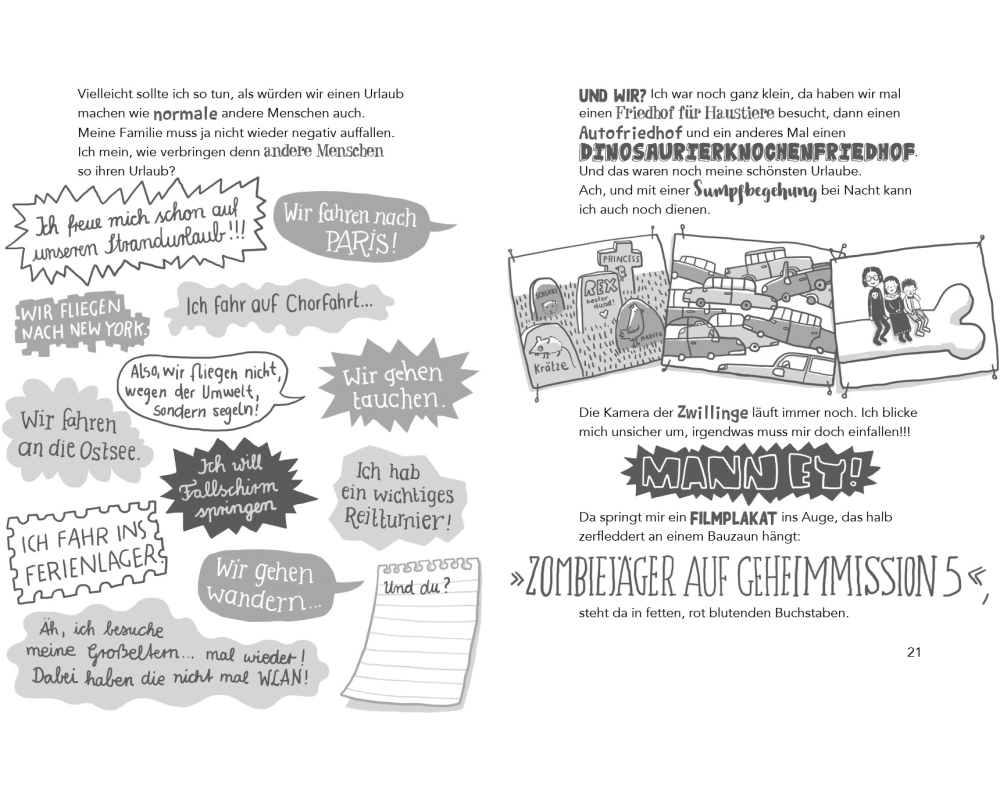 Vielleicht sollte ich so tun, als würden wir einen Urlaub
machen wie normale andere Menschen auch.
Meine Familie muss ja nicht wieder negativ auffallen.
Ich mein, wie verbringen denn andere Menschen
so ihren Urlaub?
Ich freue mich schon auf
unseren Strandurlaub!!!
Wir fahren nach
PARIS!
WIR FLIEGEN
NACH NEW YORK.
Ich fahr auf Chorfahrt...
Also, wir fliegen nicht,
wegen der Umwelt,
sondern segeln!
Wir gehen
tauchen.
Wir fahren
an die Ostsee.
Ich will
Fallschirm
springen
Ich hab
ein wichtiges
Reitturnier!
ICH FAHR INS
FERIENLAGER.
Wir gehen
wandern...
Und du?
Äh, ich besuche
meine Großeltern... mal wieder!
Dabei haben die nicht mal WLAN!
UND WIR? Ich war noch ganz klein, da haben wir mal
einen Friedhof für Haustiere besucht, dann einen
Autofriedhof und ein anderes Mal einen
DINOSAURIERKNOCHENFRIEDHOF.
Und das waren noch meine schönsten Urlaube.
Ach, und mit einer Sumpfbegehung bei Nacht kann
ich auch noch dienen.
PRINCESS
REX
bester
Hund!
MADITA
Krätze
Die Kamera der Zwillinge läuft immer noch. Ich blicke
mich unsicher um, irgendwas muss mir doch einfallen!!!
MANN EY!
Da springt mir ein FILMPLAKAT ins Auge, das halb
zerfleddert an einem Bauzaun hängt:
»ZOMBIEJÄGER AUF GEHEIMMISSION 5«,
steht da in fetten, rot blutenden Buchstaben.
21